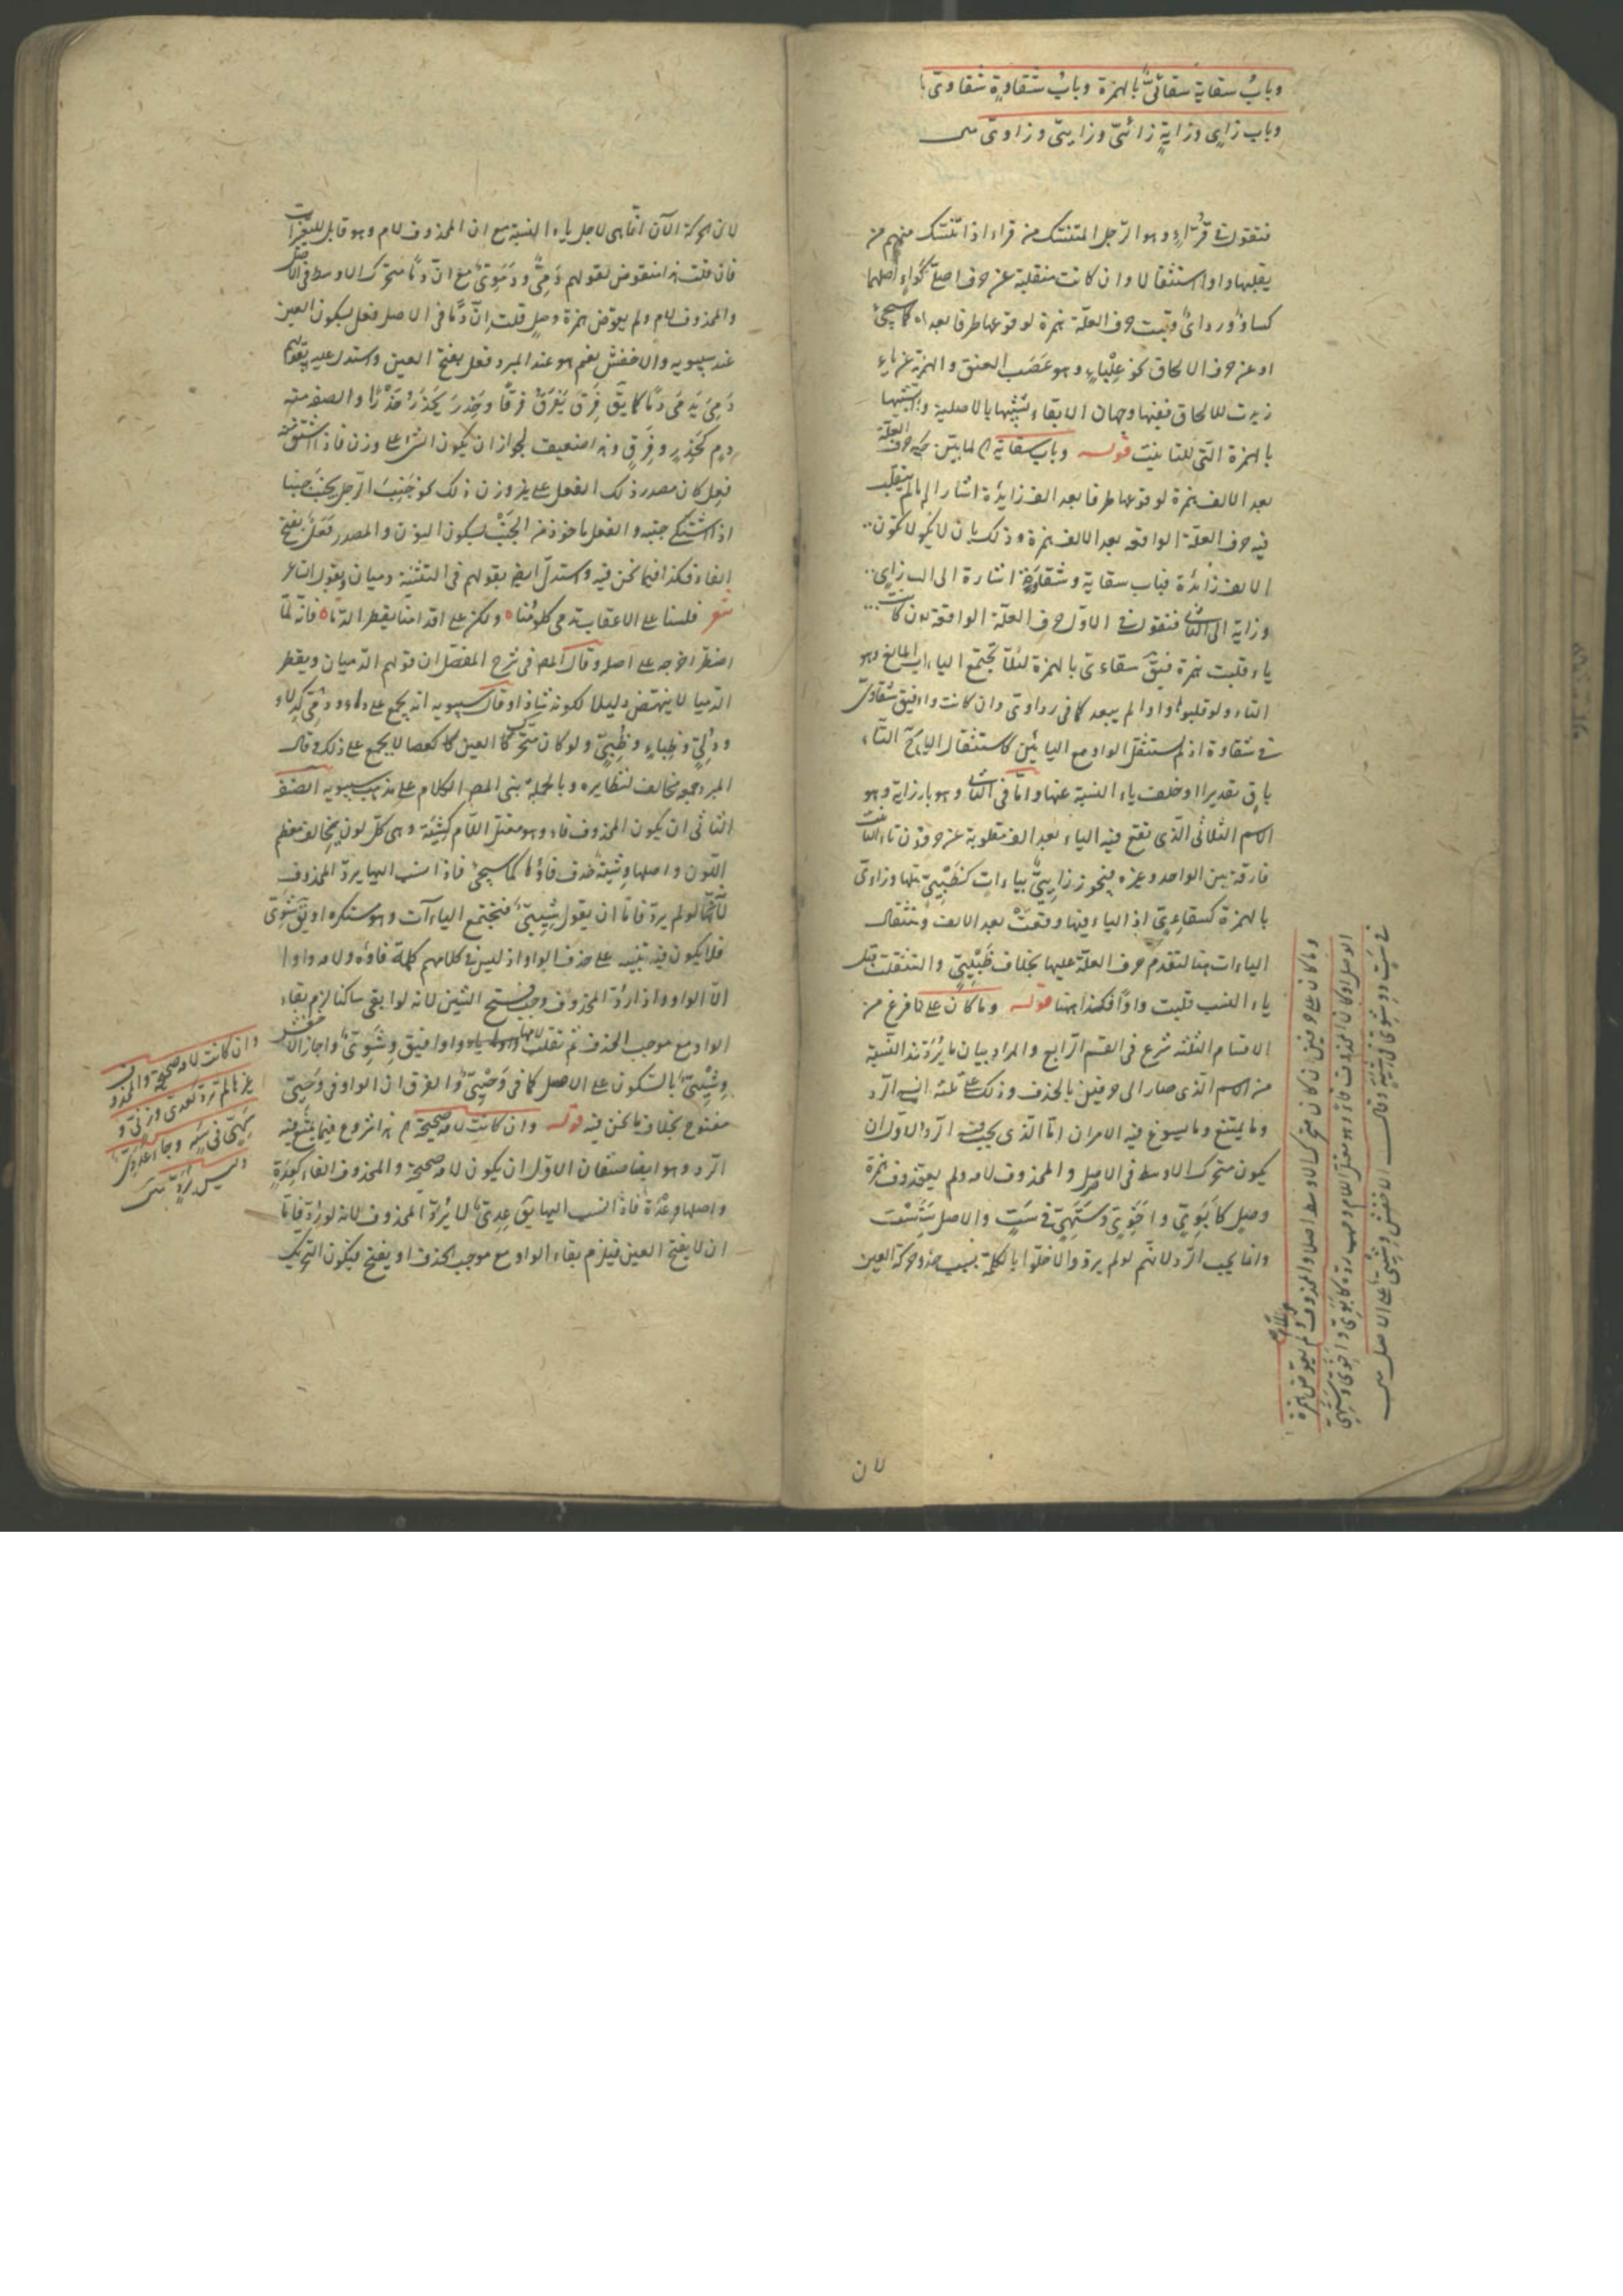 وباب سقاية سقائي بالهمزة وباب شقاوة شقاوي
وباب زاي وزاية زائي وزايي وزاوي
فتقول في قراء وهو الرجل المتنسك من قراء اذا تنسك منهم من
يقلبها واوا استثقالا وان كانت منقلبة عن حرف اصلي ككساء اصلها
كساو ورداي قلبت حرف العلة همزة لوقوعها طرفا بعد كما سيجئ
او عن حرف الالحاق نحو علباء وهو عصب العنق والهمزة عن ياء
زيدت للالحاق ففيها وجهان الابقاء تشبيها بالاصلية
بالهمزة التي للتانيث قوله وباب سقاية لما بين حرف العلة
بعد الالف همزة لوقوعها طرفا بعد الف زايدة اشار الى ما لم ينقلب
فيه حرف العلة الواقعة بعد الالف همزة وذلك بان لا يكون
الالف زائدة فباب سقاية وشقاوة اشارة الى الب زاي
وزاية الى الثاني فنقول في الاول حرف العلة الواقعة ان كانت
ياء قلبت همزة فيق سقاءي بالهمزة لئلا تجتمع الياءات
التاء ولو قلبوها واوا لم يبعد كما في رداوي وان كانت واوا فيق شقاوي
في شقاوة اذ لم يستثقل الواو مع اليائين كاستثقال الياء
باق تقديرا وخلف ياء النسبة عنها واما في الثاني وهو باب زاية وهو
الاسم الثلاثي الذي تقع فيه الياء بعد الف منقلبة عن حرف وزن تاء التانيث
فارقة بين الواحد وغيره فيجوز زايي بياءات كظبيي بلها وزاءي
بالهمزة كسقاءي اذ الياء فيها وقعت بعد الالف وتثقال
الياءات هنا لتقدم حرف العلة عليها بخلاف ظبيي والتثقلت قبل
ياء النسب قلبت واوا فكذا ههنا قوله وما كان على لما فرغ من
الاقسام الثلثة شرع في القسم الرابع والمراد بيان ما يرد عند النسبة
من الاسم الذي صار الى حرفين بالحذف وذلك على ثلثة الرد
وما يمتنع وما يسوغ فيه الامران اما الذي يجب فيه الرد الاول ان
يكون متحرك الاوسط في الاصل والمحذوف لامه ولم يعوض همزة
وصل كابوي واخوي وستهي في ست والاصل سته
وانما يجب الرد لانهم لو لم يردوا لاخلوا بالكلمة بسبب حذف حركة العين
وما كان على حرفين ان كان متحرك الاوسط اصلا والمحذوف اللام ولم يعوض همزة
الوصل او كان المحذوف فاء وهو معتل اللام وجب رده كابوي واخوي وستهي
في ست ووشوي في شية وقال الاخفش وشيي على الاصل
لان
لان الحركة الان انما هي لاجل ياء النسبة مع ان المحذوف لام وهو قابل للتغيرات
فان قلت هذا منقوض بقولهم دمي ودموي مع ان دما متحرك الاوسط في الاصل
والمحذوف لام ولم يعوض همزة وصل قلت ان دما في الاصل فعل بسكون العين
عند سيبويه والاخفش نعم هو عند المبرد فعل بفتح العين واستدل عليه بقولهم
دمي يدمى دما كما يق فرق يفرق فرقا وحذر يحذر حذرا والصفة منه
دم كحذر وفرق وهذا ضعيف لجواز ان يكون الشئ على وزن فاذا اشتق منه
فعل كان مصدر ذلك الفعل على غير وزن ذلك نحو جنب الرجل يجنب جنبا
اذا اشتكى جنبه والفعل ماخوذ من الجنب بسكون النون والمصدر فعل بفتح
الفاء فكذا فيما نحن فيه واستدل ايضا بقولهم في التثنية دميان وبقول الشاعر
شعر فلسنا على الاعقاب تدمى كلومنا ولكن على اقدامنا يقطر الدما فانه لما
اضطر اخرجه على اصله وقال المص في شرح المفصل ان قولهم الدميان ويقطر
الدميا لا ينتهض دليلا لكونه شاذا وقال سيبويه انه يجمع على دماء ودمي كدلاء
ودلي وظباء وظبي ولو كان متحرك العين كعصا لا يجمع على ذلك وقال
المبرد هو مخالف لنظايره وبالجملة بنى المص الكلام على مذهب سيبويه الصنف
الثاني ان يكون المحذوف فاء وهو معتل اللام كشية وهي كل لون يخالف معظم
اللون واصلها وشية حذف فاؤها كما سيجئ فاذا نسب اليها يرد المحذوف
لانها لو لم يرد فاما ان يقول شيي فتجتمع الياءات وهو مستكره او يق شوي
فلا يكون فيه تنبيه على حذف الواو اذ ليس في كلامهم كلمة فاؤه ولامه واو
الا الواو واذا رد المحذوف وجب فتح الشين لانه لو ابقى ساكنا لزم بقاء
الواو مع موجب الحذف ثم تقلب الياء واوا فيق وشوي واجاز الاخفش
وشيي بالسكون على الاصل كما في وحيي والفرق ان الواو في وحيي
مفتوح بخلاف ما نحن فيه قوله وان كانت لامه صحيحة هذا شروع فيما يمتنع فيه
الرد وهو ايضا صنفان الاول ان يكون لامه صحيحة والمحذوف الفاء كعدة
واصلها وعدة فاذا نسب اليها يق عدي لا يرد المحذوف لانه لو رد فاما
ان لا يفتح العين فيلزم بقاء الواو مع موجب الحذف او يفتح فيكون التحريك
وان كانت لامه صحيحة والمحذوف
غيرها لم يرد كعدي وزني و
سهي في سه وجاء عدوي
وليس برد